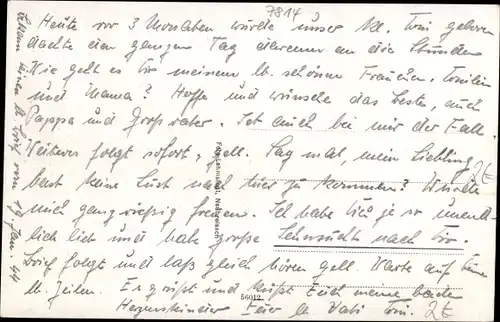 7814
Heute vor 3 Monaten wurde unser kl. Toni geboren
dachte den ganzen Tag daran an die Stunden
Wie geht es Dir meinem lb. schönen Frauchen,
und Mama? Hoffe und wünsche das Besten, auch
Pappa und Grossvater. Ist auch bei mir der Fall.
Weiteres folgt sofort, gell. Sag mal, mein Liebling
hast keine Lust nach hier zu kommen? Würde
mich ganz riesig freuen. Ich habe Dich je so unend
lich lieb und habe große Sehnsucht nach Dir.
Brief folgt und laß gleich hören gell. Warte auf Deine
lb. Zeilen. Es grüßt und küßt Euch meine beiden
Herzenskinder Euer lb. Vati Toni
56012
2E
2E
vom 19. Jan. 44